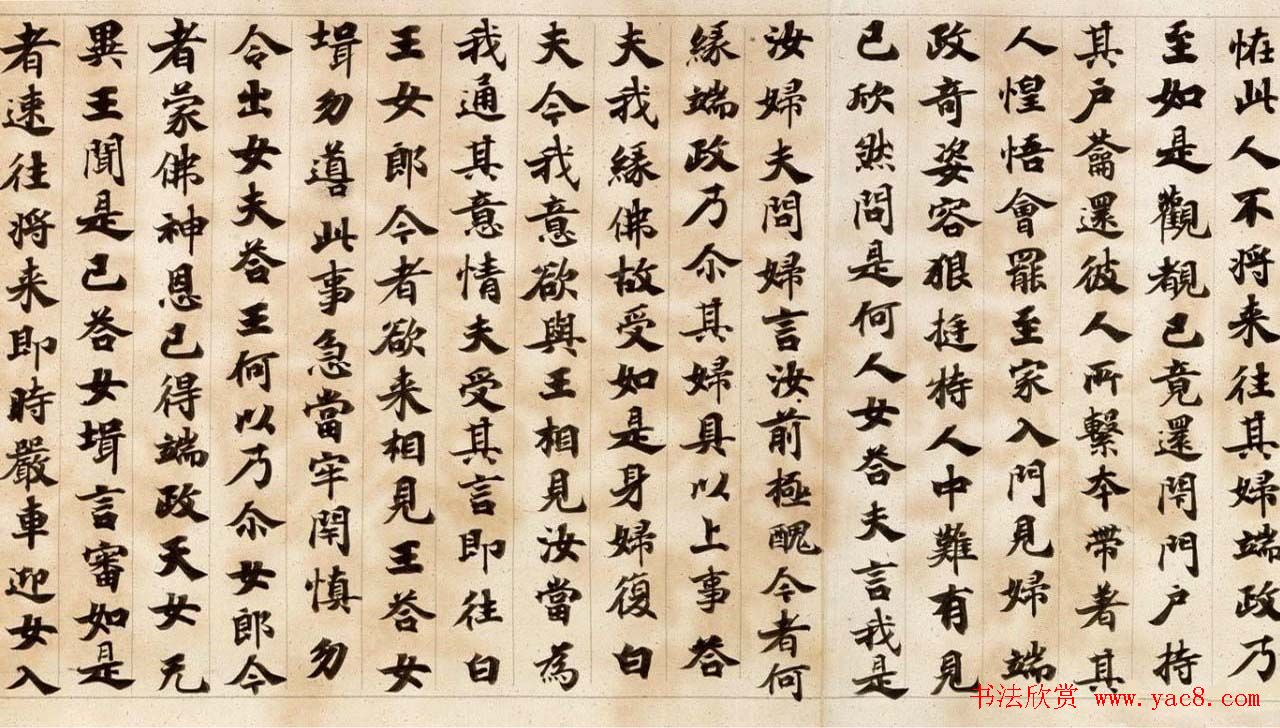 恠此人不將来往其婦端政乃
至如是觀覩已竟還閇門户持
其户蘥還彼人所繫夲帶著其
人惶悟會罷至家入門見婦端
政奇姿容狠挺特人中難有見
已欣然問是何人女荅夫言我是
汝婦夫問婦言汝前極醜今者何
緣端政乃尒其婦具以上事荅
夫我緣佛故受如是身婦復白
夫今我意欲與王相見汝當為
我通其意情夫受其言即往白
王女郎今者欲来相見王荅女
壻勿噵此事急當牢閇慎勿
令出女夫荅王何以乃尒女郎今
者蒙佛神恩已得端政天女无
異王聞是已荅女壻言審如是
者速往將来即時嚴車迎女入
书法欣赏 www.yac8.com